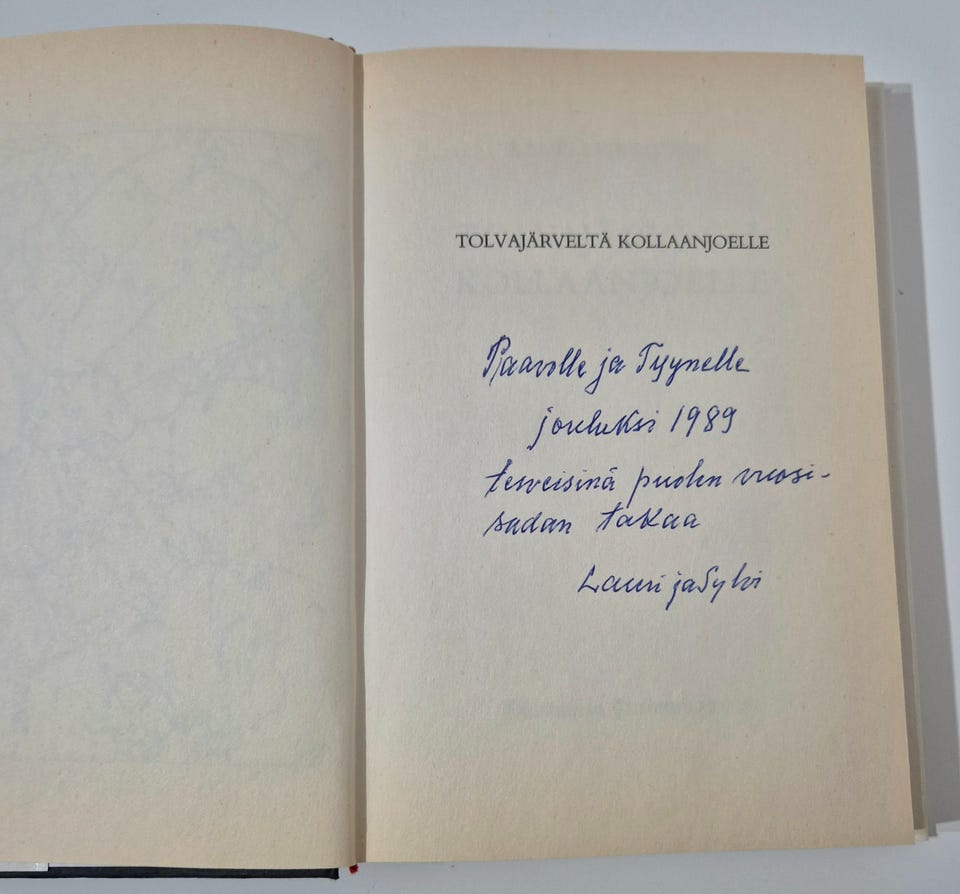 TOLVAJÄRVELTÄ KOLLAANJOELLE
Paavolle ja Tyynelle
jouluksi 1989
terveisinä puolen vuosi-
sadan takaa
Lauri ja Sylvi